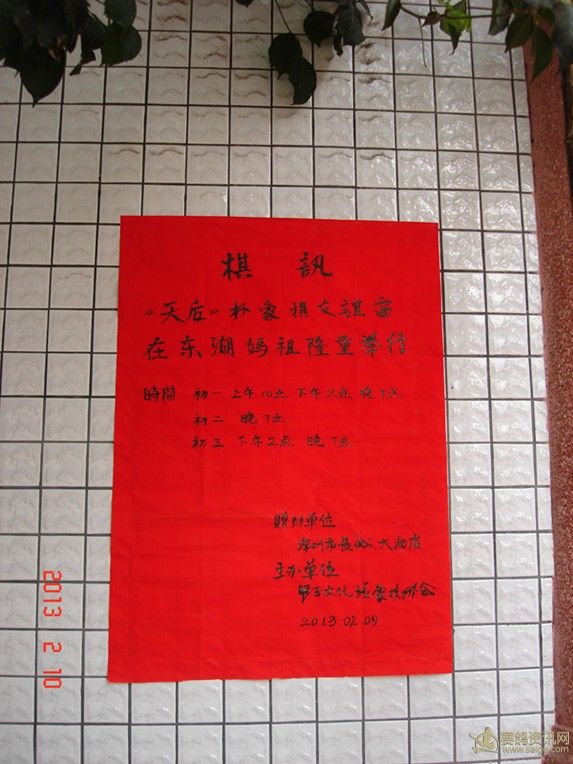 棋 訊
“天后”杯象棋文棋會
在东湖媽祖隆重举行
時間 初一 上午10点 下午2点 晚7点
初二 晚7点
初三 下午2点 晚7点
赠助单位
深圳市 大酒店
主办单位
甲子文化 象棋协会
2013 02 09
2013 2 10
赛鸽资讯网
www.saige.com